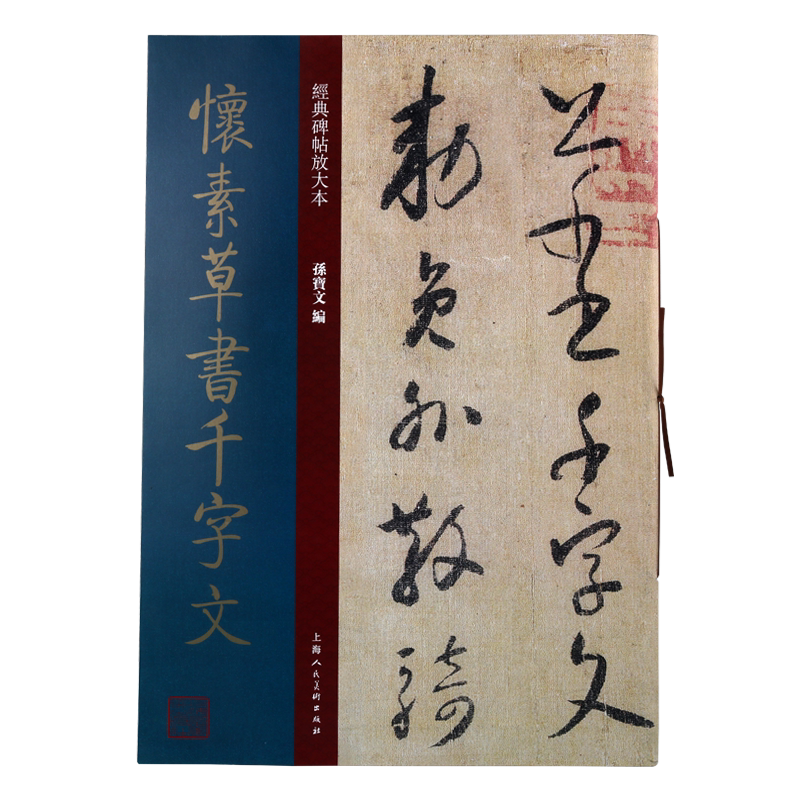 懷素草書千字文
經典碑帖放大本
孫寶文 編
上海人民美術出版社
千字文
勅員外散騎